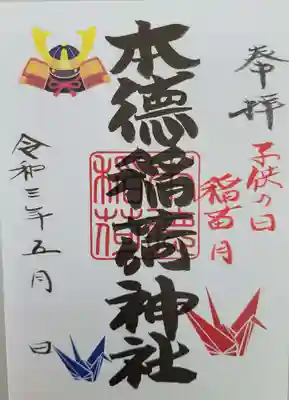 奉拝
子供の日
稲苗月
本徳稲荷神社
令和三年五月 日